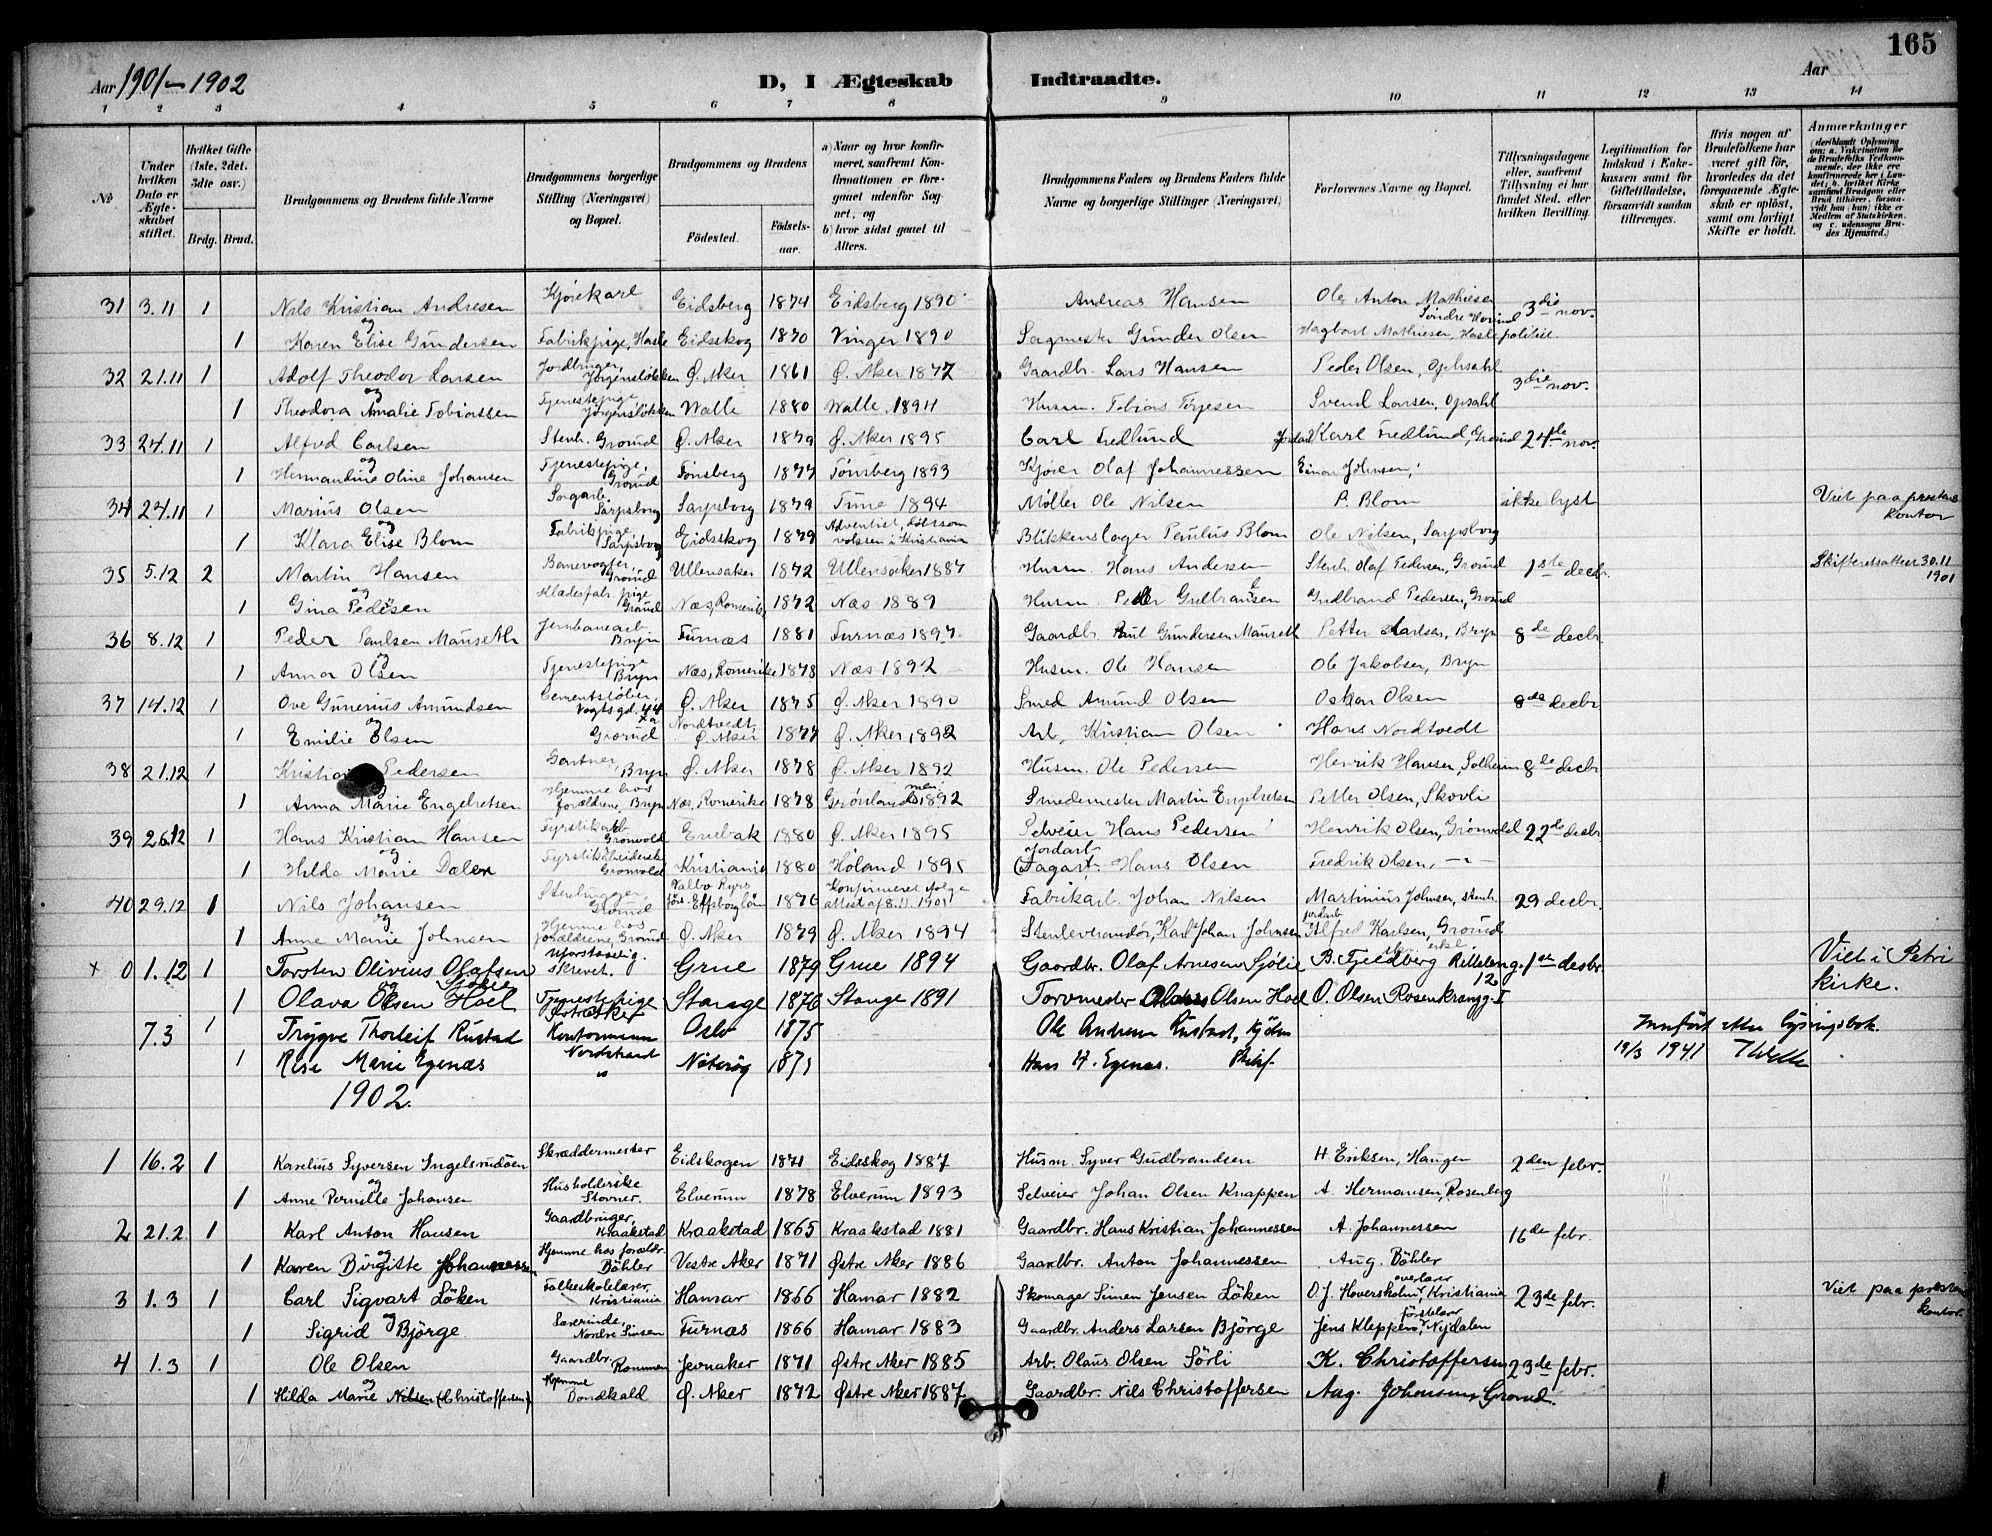 165
Aar 1901-1902
D, I Ægteskab Indtraadte.
Aar
1 2 3 4 5 6 7 8 9 10 11 12 13 14
No
Under hvilken Dato er Ægteskabet stiftet.
Hvilket Gifte (1ste, 2det, 3die osv.)
Brdg. Brud.
Brudgommens og Brudens fulde Navne
Brudgommens borgerlige Stilling (Næringsvei) og Bopæl.
Brudgommens og Brudens
Fødested. Fødselsaar.
a) Naar og hvor konfirmeret, saafremt Konfirmationen er foregaaet udenfor Sognet, og b) hvor sidst gaaet til Alters.
Brudgommens Faders og Brudens Faders fulde Navne og borgerlige Stillinger (Næringsvei)
Forlovernes Navne og Bopæl.
Tillysningsdagene eller, saafremt Tillysning ei har fundet Sted, efter hvilken Bevilling.
Legitimation for Indskud i Enkekassen samt for Giftetilladelse, forsaavidt saadan tiltrænges.
Hvis nogen af Brudefolkene har været gift før, hvorledes da det foregaaende Ægteskab er opløst, samt om lovligt Skifte er holdt.
Anmærkninger (deriblandt Oplysning om: a. Vakcination for de Brudefolks Vedkommende, der ikke ere konfirmerede her i Landet; b. hvilket Kirkesamfund Brudgom eller Brud tilhører, forsaavidt han (hun) ikke er Medlem af Statskirken, og c. udensogns Brudes Hjemsted.)
31 3.11 1 Nils Kristian Andresen Kjørekarl Eidsberg 1874 Eidsberg 1890 Andreas Hansen Ole Anton Mathiesen Søndre Hovind 3die nov.
og
1 Karen Elise Gundersen Fabrikpige, Hasle Eidsskog 1870 Vinger 1890 Sagmester Gunder Olsen Hagbart Mathiesen, Hasle politist.
32 21.11 1 Adolf Theodor Larsen Jordbruger, Jørgensløkken Ø. Aker 1861 Ø. Aker 1877 Gaardbr. Lars Hansen Peder Olsen, Ophsahl 3die nov.
og
1 Theodora Amalie Tobiassen Tjenestepige, Jørgensløkken Walle 1880 Walle, 1894 Husm. Tobias Terjesen Svend Larsen, Opsahl
33 24.11 1 Alfred Carlsen Stenh. Grorud Ø. Aker 1879 Ø. Aker 1895 Carl Fredlund Karl Fredlund, Grorud 24de nov.
og
1 Hermandine Oline Johansen Tjenestepige, Grorud Tønsberg 1877 Tønsberg 1893 Kjører Olaf Johannessen Einar Johnsen,
34 24.11 1 Marius Olsen Sagarb. Sarpsborg Sarpsborg 1879 Tune 1894 Møller Ole Nilsen P. Blom ikke lyst Viet paa prestens kontor
og
1 Klara Elise Blom Fabrikpige Sarpsborg Eidsskog 1879 Adventist, døbt som voksen i Kristiania Blikkenslager Paulus Blom Ole Nilsen, Sarpsborg
35 5.12 2 Martin Hansen Banevogter, Grorud Ullensaker 1872 Ullensaker 1887 Husm. Hans Andersen Stenh. Olaf Pedersen, Grorud 1ste decbr. Skifteretsattest 30.11 1901
og
1 Gina Pedersen Klædesfabr. pige Grorud Næs, Romerike 1872 Næs 1889 Husm Peder Gulbrandsen Gudbrand Pedersen, Grorud
36 8.12 1 Peder Paulsen Mauseth Jernbanearb. Bryn Furnæs 1881 Furnæs 1897. Gaardbr. Paul Gundersen Mauseth Petter Karlsen, Bryn 8de decbr.
og
1 Anna Olsen Tjenestepige Bryn Næs, Romerike 1878 Næs 1892 Husm. Ole Hansen Ole Jakobsen, Bryn
37 14.12 1 Ove Gunerius Amundsen Cementstøber, Vogtsgd. 44 Ø. Aker 1875 Ø. Aker 1890 Smed Amund Olsen Oskar Olsen 8de decbr
og
1 Emilie Olsen Grorud Nordtvedt, Ø. Aker 1877 Ø. Aker, 1892 Arb. Kristian Olsen Hans Nordtvedt
38 21.12 1 Kristian Pedersen Gartner, Bryn Ø. Aker 1878 Ø. Aker 1892 Husm. Ole Pedersen Henrik Hansen, Solheim 8de decbr.
1 Anna Marie Engebretsen Hjemme hos forældrene, Bryn Næs, Romerike 1878 Grønlands men. 1892 Smedemester Martin Engebretsen Petter Olsen, Skovli
39 26.12 1 Hans Kristian Hansen Fyrstikarb Grønvold Enebak 1880 Ø. Aker 1895 Selveier Hans Pedersen Henrik Olsen, Grønvold 22de decbr.
og
1 Hilda Marie Dalen Fyrstikarbeiderske Grønvold Kristiania 1880 Høland 1895 Jordarb. (Sagarb. Hans Olsen Fredrik Olsen, -"-
40 29.12 1 Nils Johansen Stenhugger, Grorud 1876 Konfirmeret ifølge attest af 8.11.1901 Fabrikarb. Johan Nilsen Martinius Johnsen, stenh. 29 decbr.
og
1 Anne Marie Johnsen Hjemme hos forældrene, Grorud Ø. Aker 1879 Ø. Aker 1894 Stenleverandør, Karl Johan Johnsen jordarb. Alfred Karlsen, Grorud
x 0 1.12 1 Torsten Olivius Olafsen Sjølie Grue 1879 Grue 1894 Gaardbr. Olaf Arnesen Sjølie B. Fjeldberg 1ste desbr. Viet i Petri kirke.
og
1 Olava Olsen Hoel Tjenestepige Østre Aker Stange 1876 Stange 1891 Torvmester Olsen Hoel O. Olsen Rosenkrantzg. I
7.3 1 Trygve Thorleif Rustad Kontormann Oslo 1875 Ole Andreas Rustad, kjøbm Innført etter lysningsbok.
1 Marie Egenæs Nordstrand " Nøterøy 1871 Hans H. Egenæs. Skibsf. 19/3 1941
1902.
1 16.2 1 Karelius Syversen Ingelsrudøen Skræddermester Eidskogen 1871 Eidsskog 1887 Husm. Syver Gudbrandsen H Eriksen, Haugen 2den febr.
og
1 Anne Pernille Johansen Husholderske Stovner. Elverum 1878 Elverum 1893 Selveier Johan Olsen Knappen A. Hermansen, Rosenberg
2 21.2 1 Karl Anton Hansen Gaardbruger, Kraakstad Kraakstad 1865 Kraakstad 1881 Gaardbr. Hans Kristian Johannessen A. Johannessen 16de febr.
og
1 Karen Birgitte Johannessen Hjemme hos forældr. Bøhler Vestre Aker 1871 Østre Aker 1886 Gaardbr. Anton Johannessen Aug. Bøhler
3 1.3 1 Carl Sigvart Løken Folkeskolelærer, Kristiania Hamar 1866 Hamar 1882 Skomager Simen Jensen Løken O. J. Hoversholm overlærer Kristiania 23de febr. Viet paa prestens kontor.
og
1 Sigrid Bjørge Lærerinde, Nordre Sinsen Furnæs 1866 Hamar 1883 Gaardbr. Anders Larsen Bjørge Jens Kleppen, førstelærer Nydalen
4 1.3 1 Ole Olsen Gaardbr. Rommen Jevnaker 1871 Østre Aker 1885 Arb. Olaus Olsen Sørli K. Christoffersen 23de febr.
og
1 Hilda Marie Nilsen (Christoffersen) Hjemme Døndkald Ø. Aker 1872 Østre Aker 1887. Gaardbr. Nils Christoffersen Aug. Johansen, Grorud.